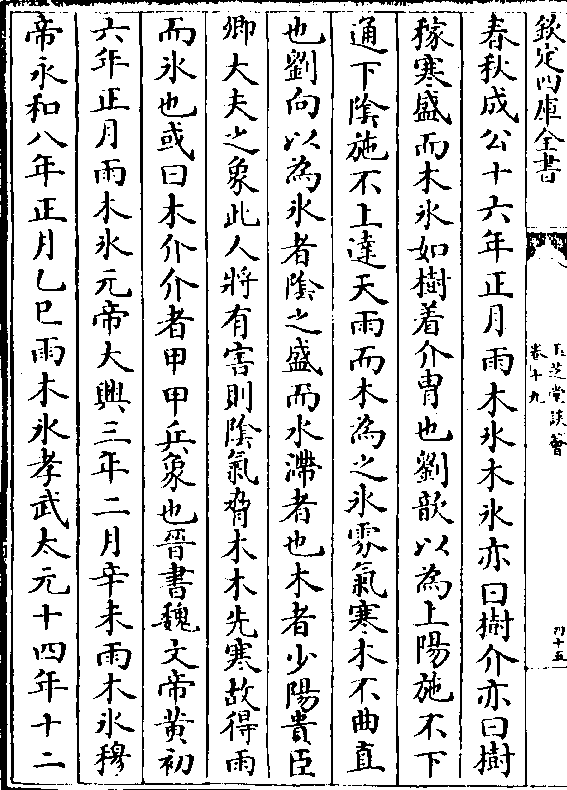 欽定四庫全書
玉芝堂談薈
卷十九
春秋成公十六年正月雨木氷木氷亦曰樹介亦曰樹
稼寒盛而木氷如樹着介胄也劉歆以為上陽施不下
通下陰施不上達天雨而木為之氷雰氣寒木不曲直
也劉向以為氷者陰之盛而水滯者也木者少陽貴臣
卿大夫之象此人將有害則陰氣脅木木先寒故得雨
而氷也或曰木介介者甲甲兵象也晉書魏文帝黄初
六年正月雨木氷元帝大興三年二月辛未雨木氷穆
帝永和八年正月乙巳雨木氷孝武太元十四年十二